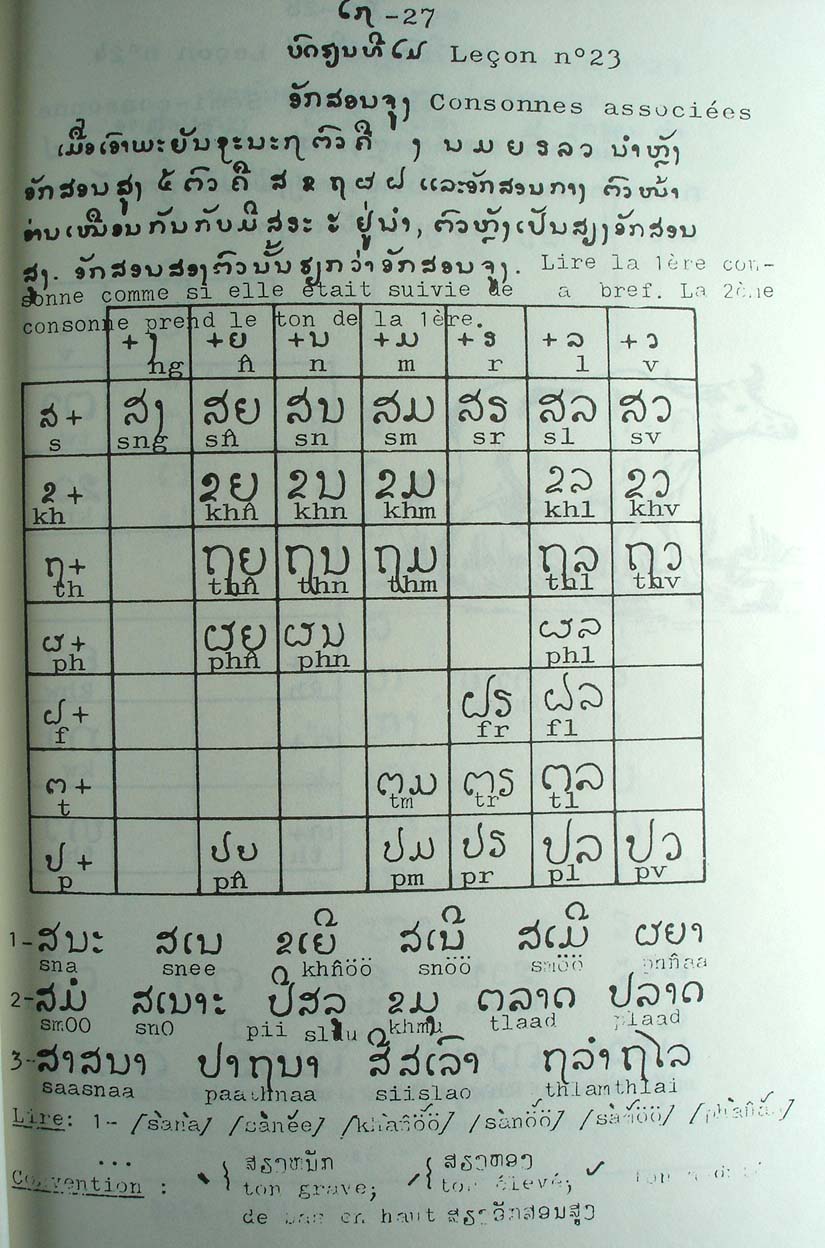 -27
Leçon nº23
ອັກສອນຈູງ Consonnes associées
ເມື່ອເອົາພະຍັນຊະນະ໗ ຕົວ ຄື ງ ນ ມ ຍ ຣ ລ ວ ນຳຫຼັງ
ອັກສອນສູງ ໕ ຕົວ ຄື ສ ຂ ຖ ຜ ຝ ແລະອັກສອນກາງ ຕົວໜ້າ
ອ່ານເໝືອນກັນກັບມີ ສຣະ ະ ຢູ່ນຳ, ຕົວຫຼັງເປັນສຽງອັກສອນ
ສູງ. ອັກສອນສອງຕົວນັ້ນຮຽກວ່າອັກສອນຈູງ. Lire la 1ère con-
sonne comme si elle était suivie de a bref. La 2ème
consonne prend le ton de la 1ère.
+ງ +ຍ +ນ +ມ +ຣ +ລ +ວ
ng n̂ n m r l v
ສ+ ສງ ສຍ ສນ ສມ ສຣ ສລ ສວ
s sng sn̂ sn sm sr sl sv
ຂ+ ຂຍ ຂນ ຂມ ຂລ ຂວ
kh khn̂ khn khm khl khv
ຖ+ ຖຍ ຖນ ຖມ ຖລ ຖວ
th thn̂ thn thm thl thv
ຜ+ ຜຍ ຜນ ຜລ
ph phn̂ phn phl
ຝ+ ຝຣ ຝລ
f fr fl
ຕ+ ຕມ ຕຣ ຕລ
t tm tr tl
ປ+ ປຍ ປມ ປຣ ປລ ປວ
p pn̂ pm pr pl pv
1- ສນະ ສເນ ຂເຍີ ສເນີ ສເມີ ຜຍາ
sna snee khn̂öö snöö smöö phn̂aa
2- ສມໍ ສເນາະ ປີສລູ ຂມຸ ຕລາດ ປລາດ
smOO snO pii sluu khmu tlaad plaad
3- ສາສນາ ປາຖນາ ສີສເລົາ ຖລຳຖໄລ
saasnaa paathnaa siislao thlamthlai
Lire: 1- /sànà/ /sàněe/ /khàn̂öö/ /sànöö/ /sàmöö/ /phàn̂ǎa/
...
Convention : ton grave; ton élevé;
de bas en haut ສຽງອັກສອນສູງ